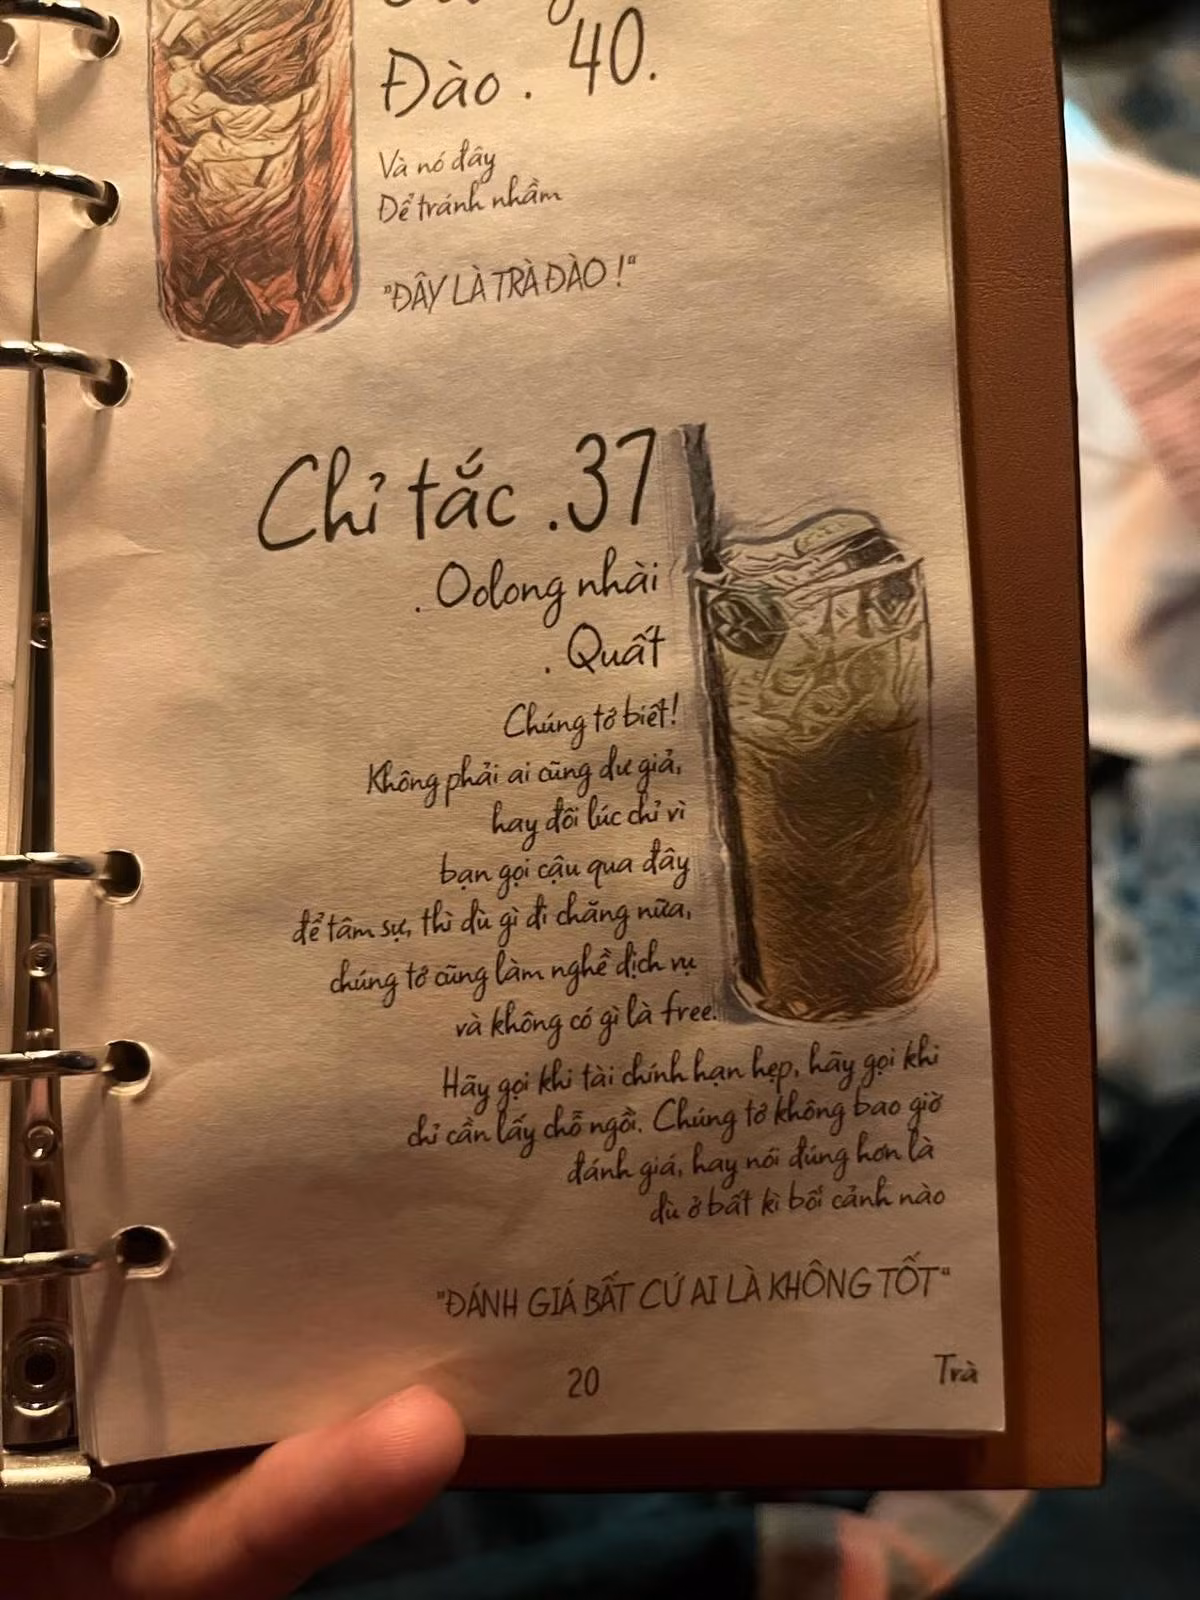 Đào . 40.
Và nó đây
Để tránh nhầm
"ĐÂY LÀ TRÀ ĐÀO !"
Chỉ tắc .37
. Oolong nhài
. Quất
Chúng tớ biết!
Không phải ai cũng dư giả,
hay đôi lúc chỉ vì
bạn gọi cậu qua đây
để tâm sự, thì dù gì đi chăng nữa,
chúng tớ cũng làm nghề dịch vụ
và không có gì là free.
Hãy gọi khi tài chính hạn hẹp, hãy gọi khi
chỉ cần lấy chỗ ngồi. Chúng tớ không bao giờ
đánh giá, hay nói đúng hơn là
dù ở bất kì bối cảnh nào
"ĐÁNH GIÁ BẤT CỨ AI LÀ KHÔNG TỐT"
20
Trà